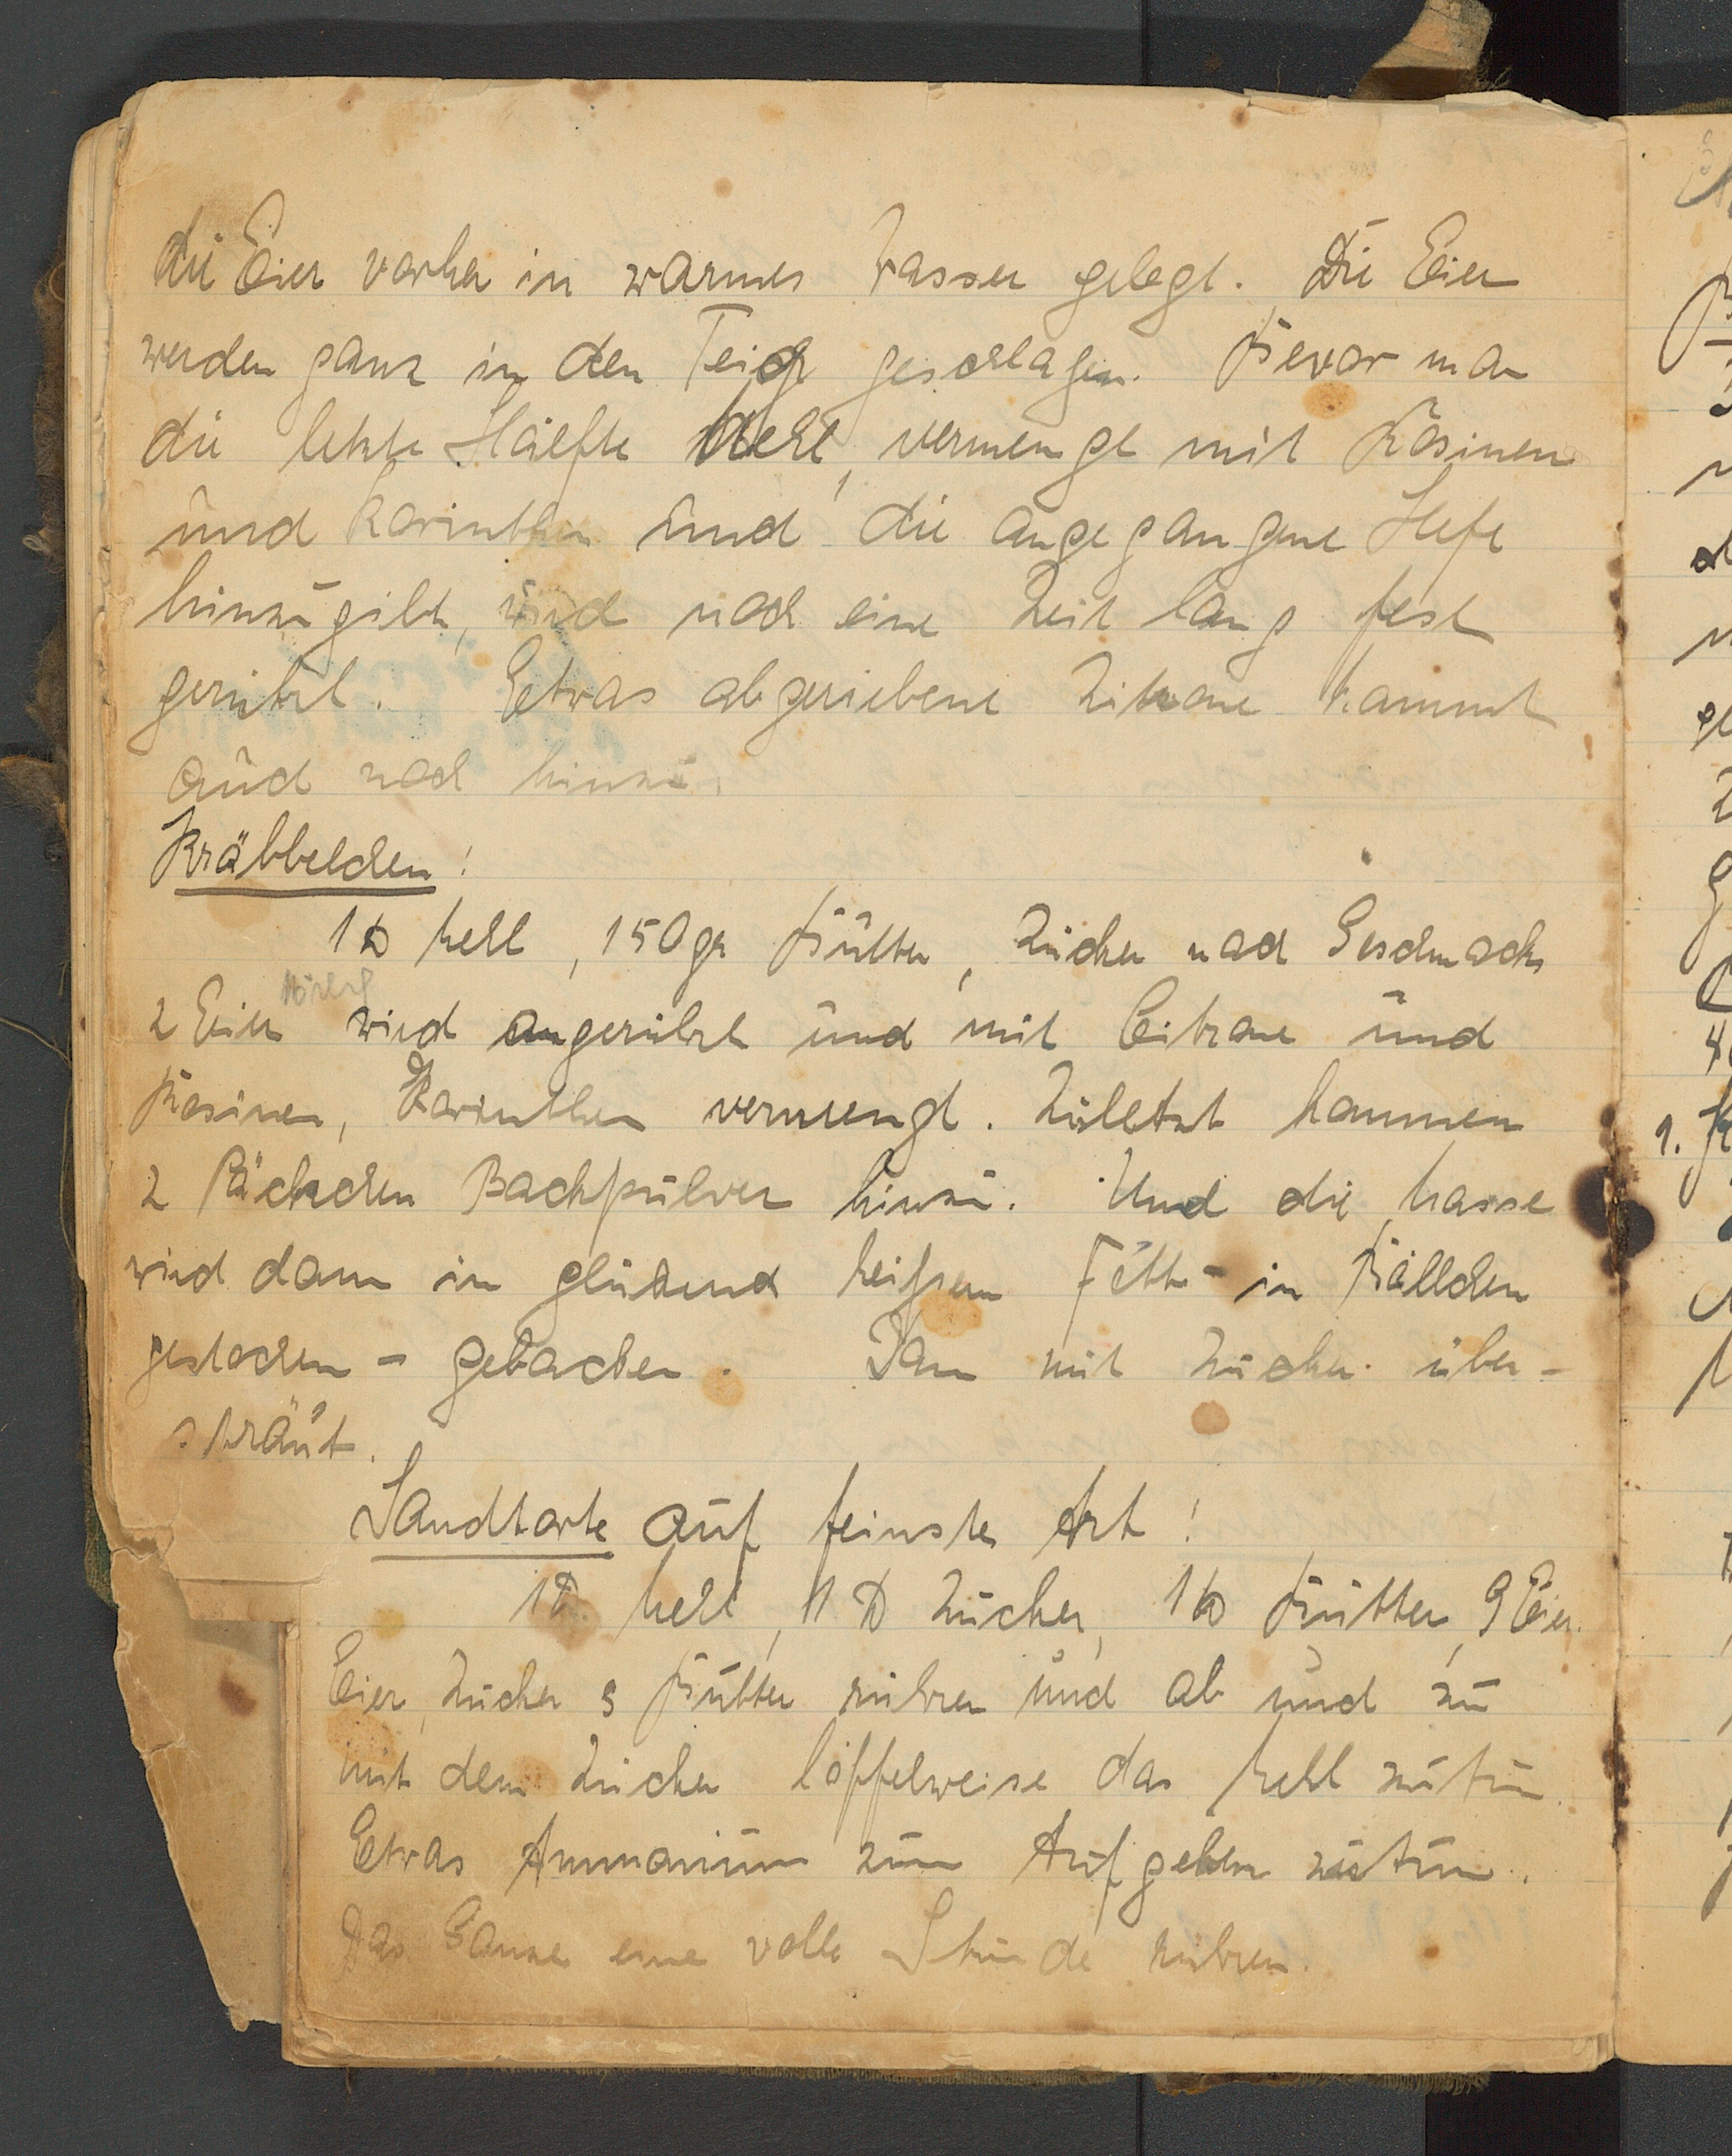 die Eier vorher in warmes Wasser gelegt. Die Eier
werden ganz in den Teig geschlagen. Bevor man
die letzte Hälfte Mehl, vermengt mit Rosinen
und Korinthen und die angegangene Hefe
hinzugibt, wird noch eine Zeit lang fest
gerührt. Etwas abgeriebene Zitrone kommt
auch noch hinzu.
Kräbbelchen!
1 ℔ Mehl, 150 gr Butter, Zucker nach Geschmack
Milch
2 Eier wird angerührt und mit Citrone und
Rosinen, Korinthen vermengt. Zuletzt kommen
2 Päckchen Backpulver hinzu. Und die Masse
wird dann in glühend heißem Fett - in Bällchen
gestochen - gebacken. Dann mit Zucker über-
sträut.
Sandtorte auf feinste Art!
1 ℔ Mehl, 1 ℔ Zucker, 1 ℔ Butter, 9 Eier.
Eier, Zucker & Butter rühren und ab und zu
mit dem Zucker löffelweise das Mehl zutun.
Etwas Ammonium zum Aufgehen zutun.
Das Ganze eine volle Stunde rühren.